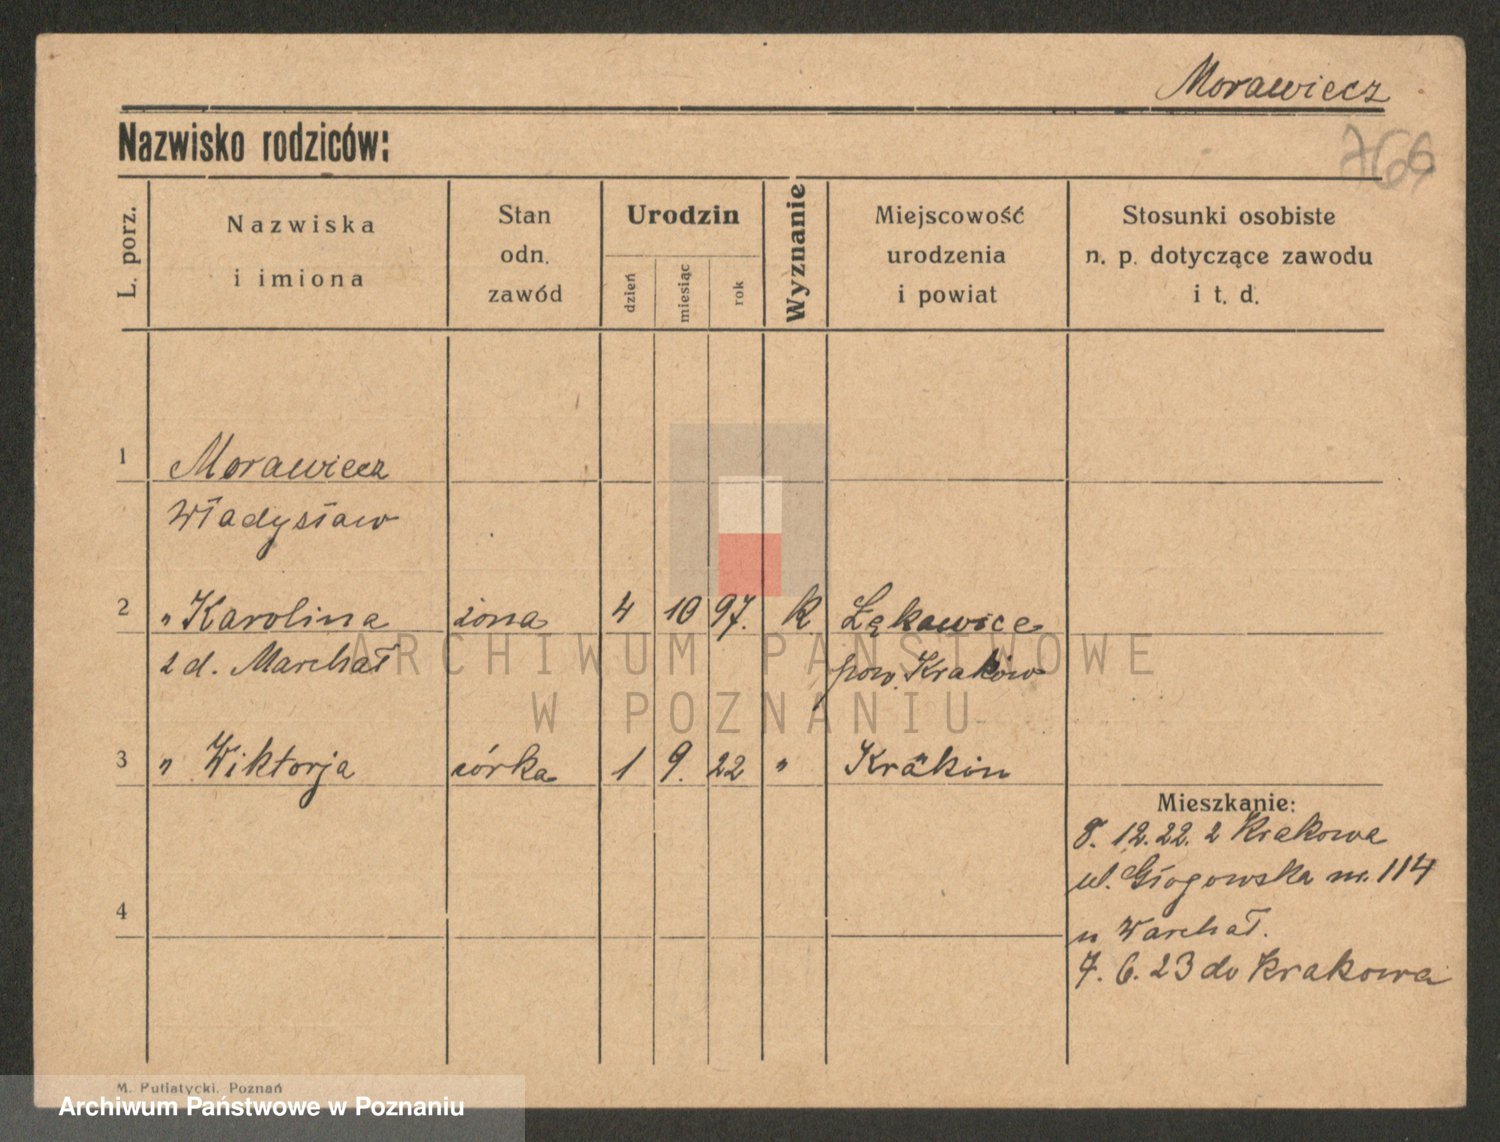 Morawiecz
Nazwisko rodziców:
L. porz.
Nazwiska
i imiona
Stan
odn.
zawód
Urodzin
dzień
miesiąc
rok
Wyznanie
Miejscowość
urodzenia
i powiat
Stosunki osobiste
n. p. dotyczące zawodu
i t. d.
1 Morawiecz
Władysław
2 " Karolina żona 4 10 97. K. Łękawice
z d. Marchał pow. Kraków
3 " Wiktorja córka 1 9. 22 "
Mieszkanie:
8. 12. 22. z Krakowa
ul. Głogowska nr. 114
4
u Warchał.
7. 6. 23 do Krakowa
M. Putiatycki, Poznań
ARCHIWUM PAŃSTWOWE
W POZNANIU
Archiwum Państwowe w Poznaniu